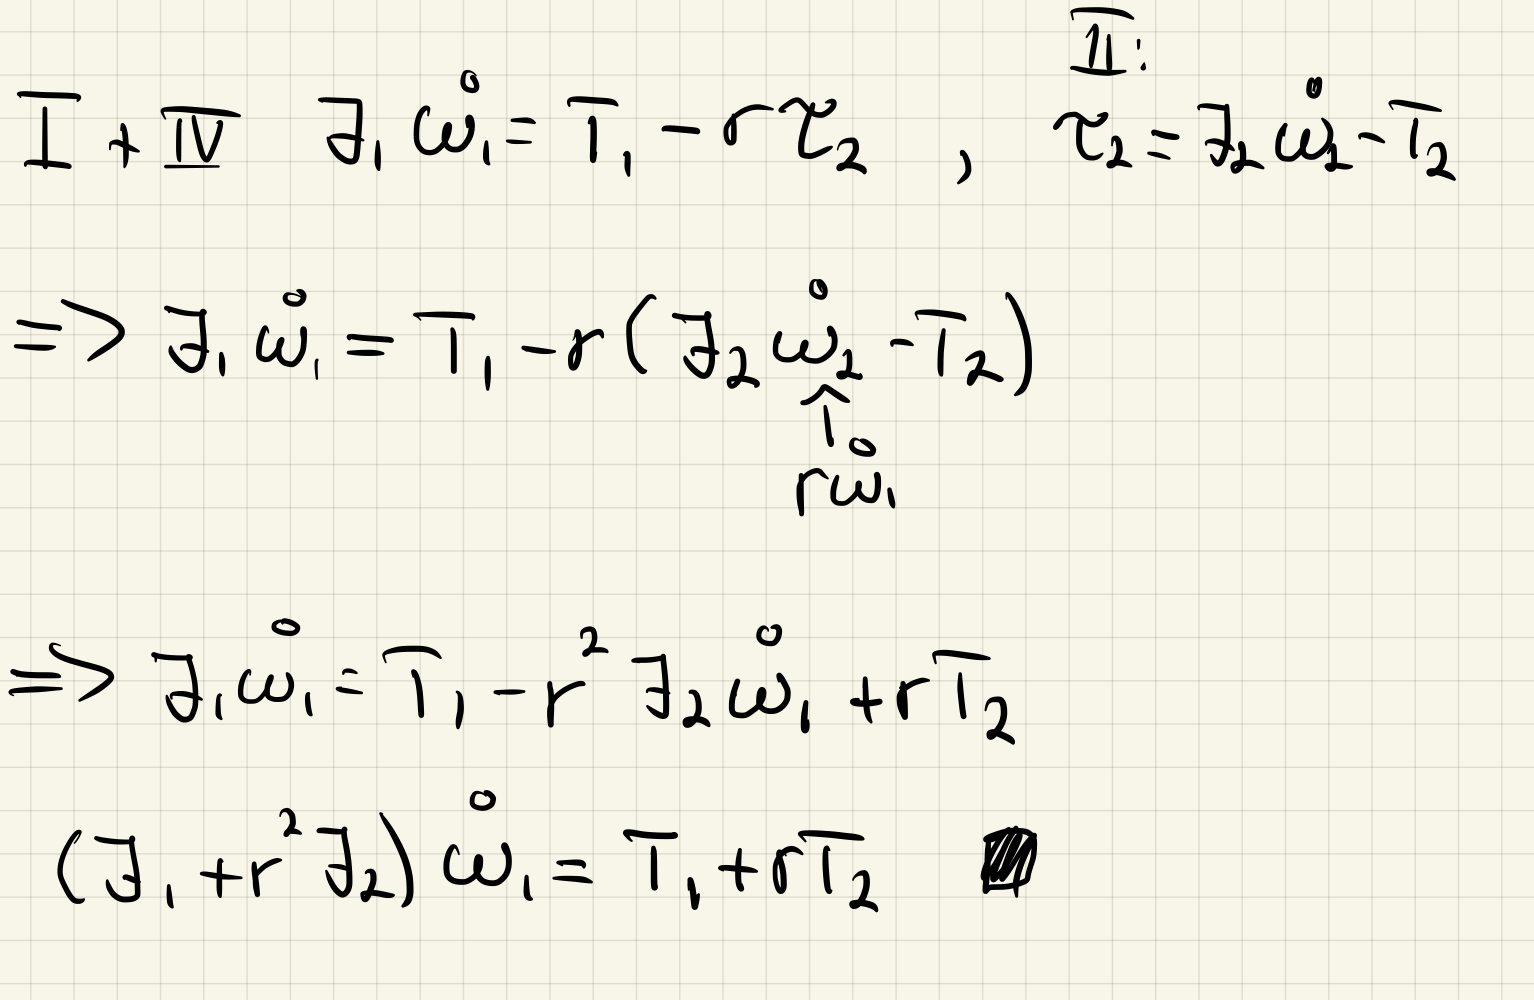 II:
I + IV J₁ ω̇₁ = T₁ - rτ₂ , τ₂ = J₂ ω̇₂ - T₂
=> J₁ ω̇₁ = T₁ - r(J₂ ω̇₂ - T₂)
↑
rω̇₁
=> J₁ ω̇₁ = T₁ - r² J₂ ω̇₁ + rT₂
(J₁ + r² J₂) ω̇₁ = T₁ + rT₂ ■